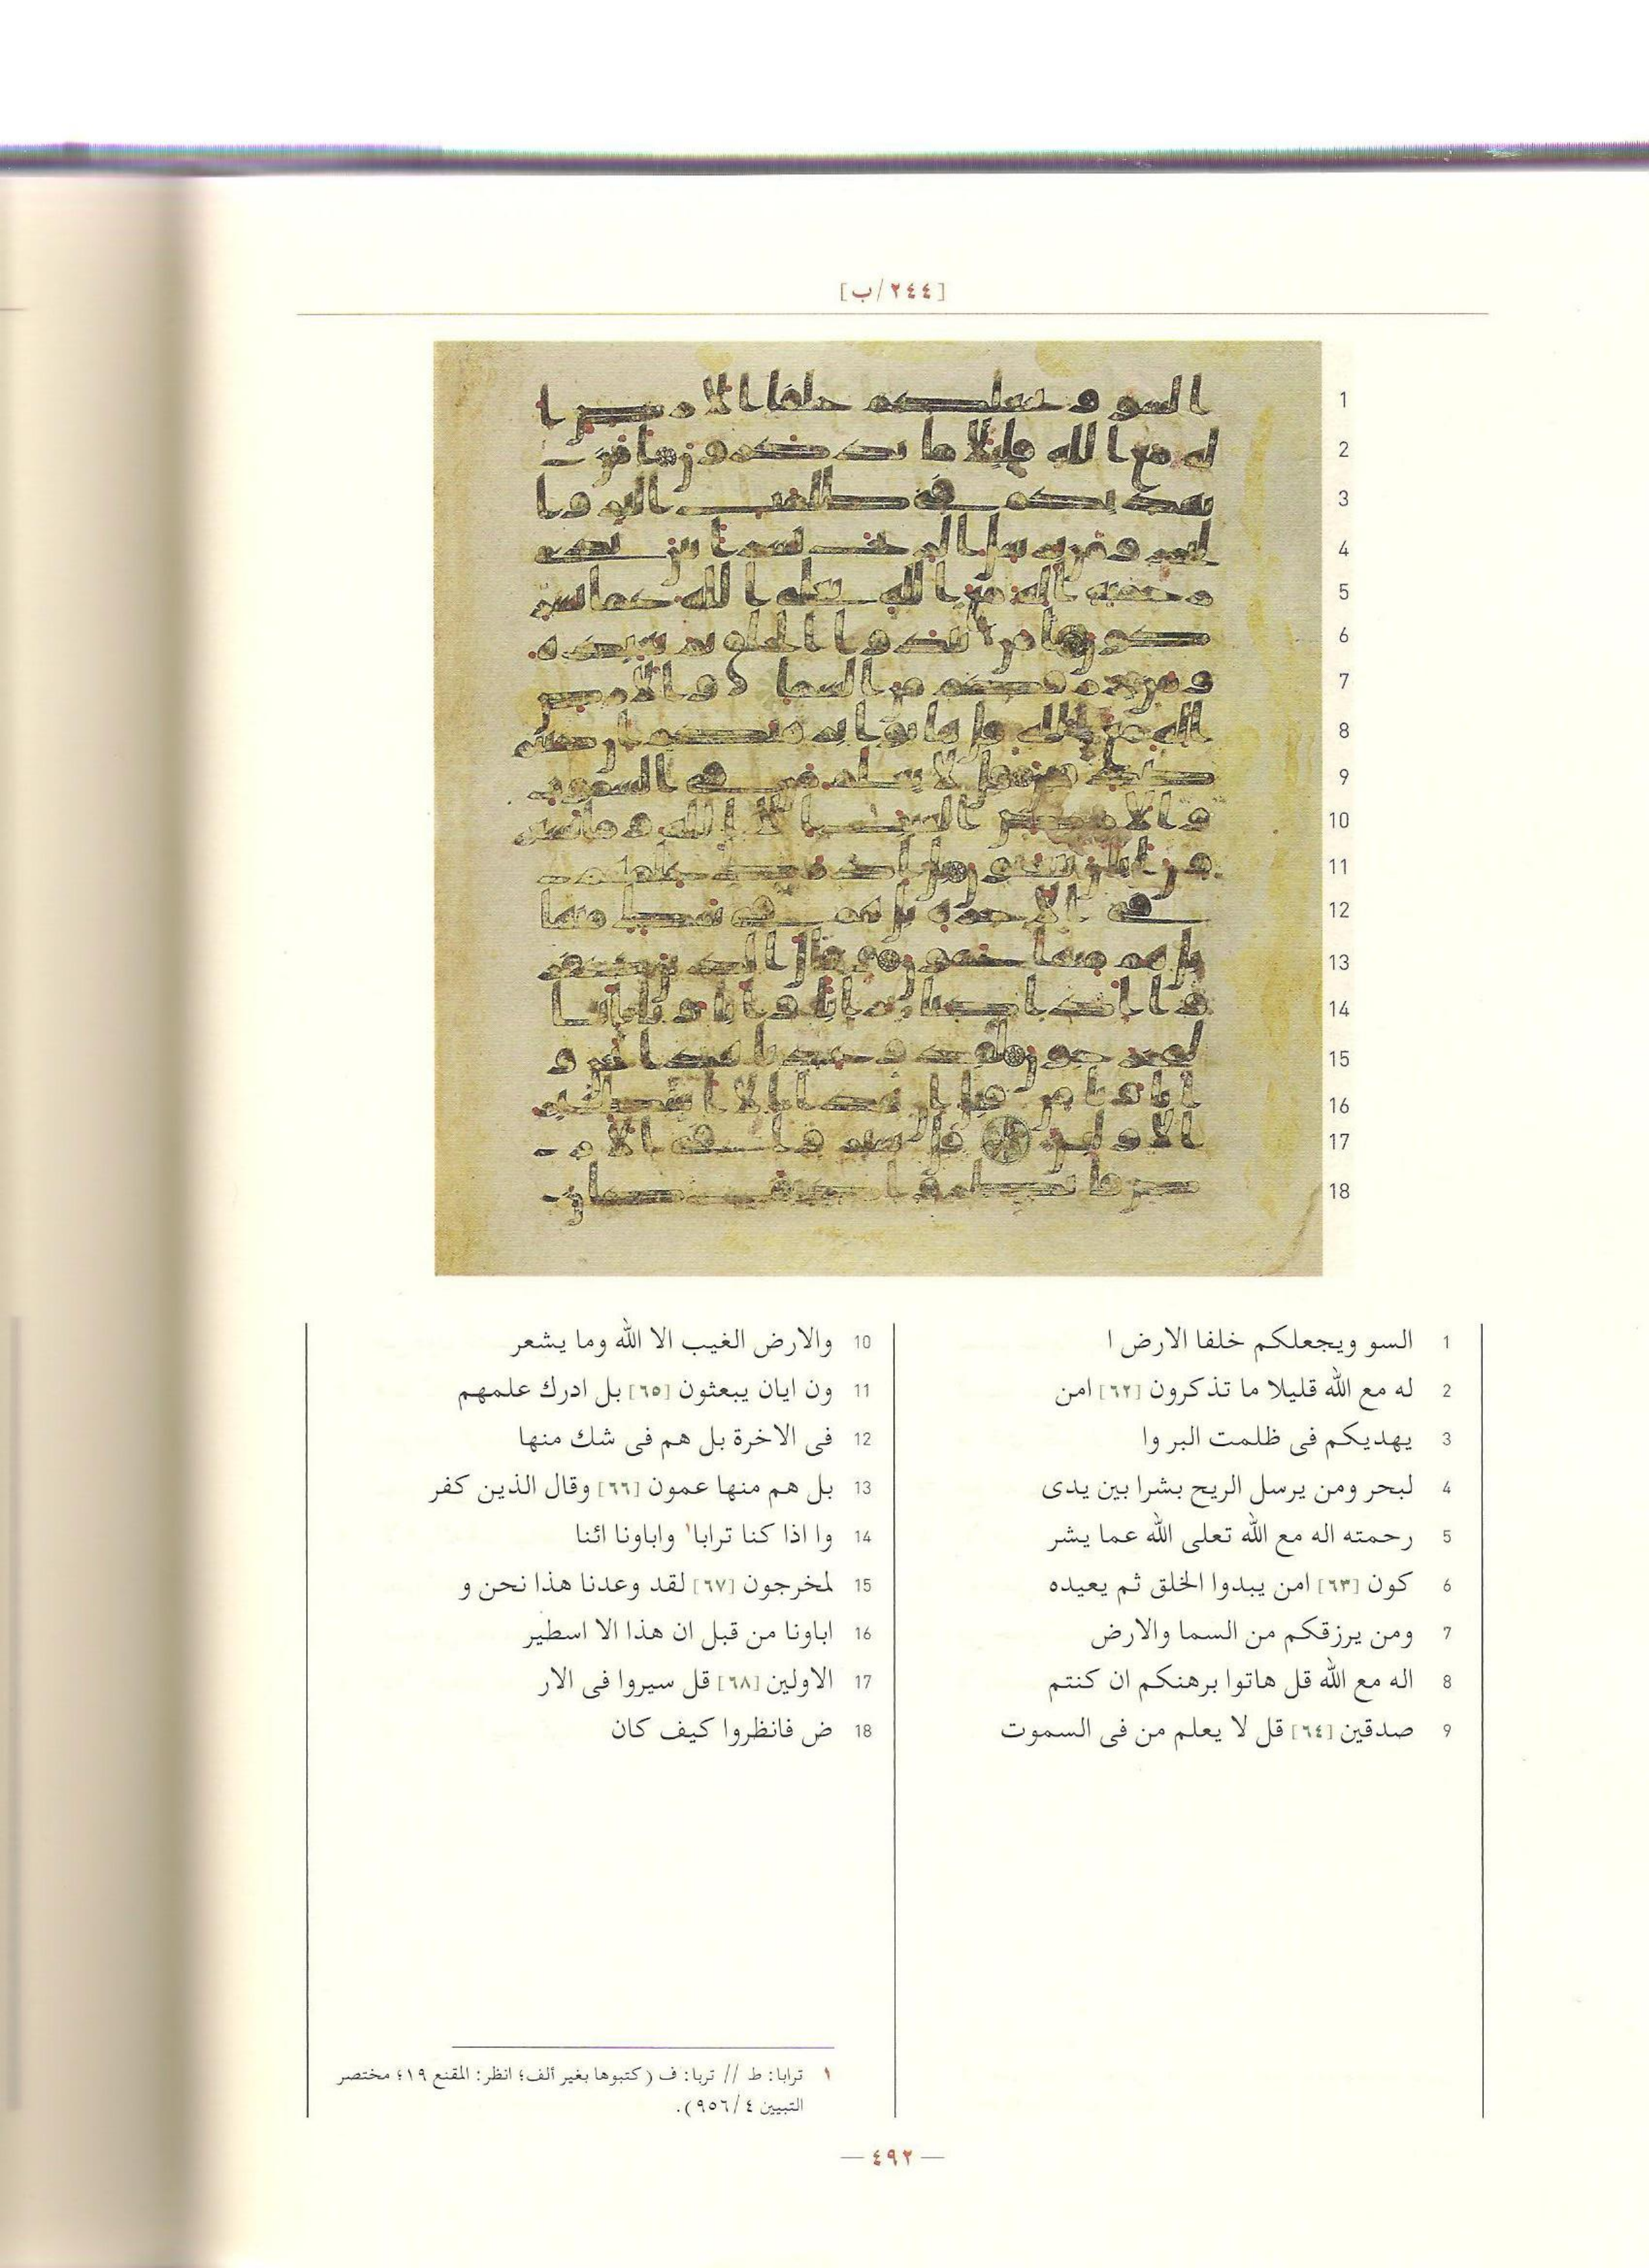 [٢٤٤/ب]
1 السو ويجعلكم خلفا الارض ا
2 له مع الله قليلا ما تذكرون [٦٢] امن
3 يهديكم فى ظلمت البر وا
4 لبحر ومن يرسل الريح بشرا بين يدى
5 رحمته اله مع الله تعلى الله عما يشر
6 كون [٦٣] امن يبدوا الخلق ثم يعيده
7 ومن يرزقكم من السما والارض
8 اله مع الله قل هاتوا برهنكم ان كنتم
9 صدقين [٦٤] قل لا يعلم من فى السموت
10 والارض الغيب الا الله وما يشعر
11 ون ايان يبعثون [٦٥] بل ادرك علمهم
12 فى الاخرة بل هم فى شك منها
13 بل هم منها عمون [٦٦] وقال الذين كفر
14 وا اذا كنا ترابا١ واباونا ائنا
15 لمخرجون [٦٧] لقد وعدنا هذا نحن و
16 اباونا من قبل ان هذا الا اسطير
17 الاولين [٦٨] قل سيروا فى الار
18 ض فانظروا كيف كان
١ ترابا: ط // تربا: ف (كتبوها بغير ألف؛ انظر: المقنع ١٩؛ مختصر
التبيين ٤/٩٥٦).
— ٤٩٢ —